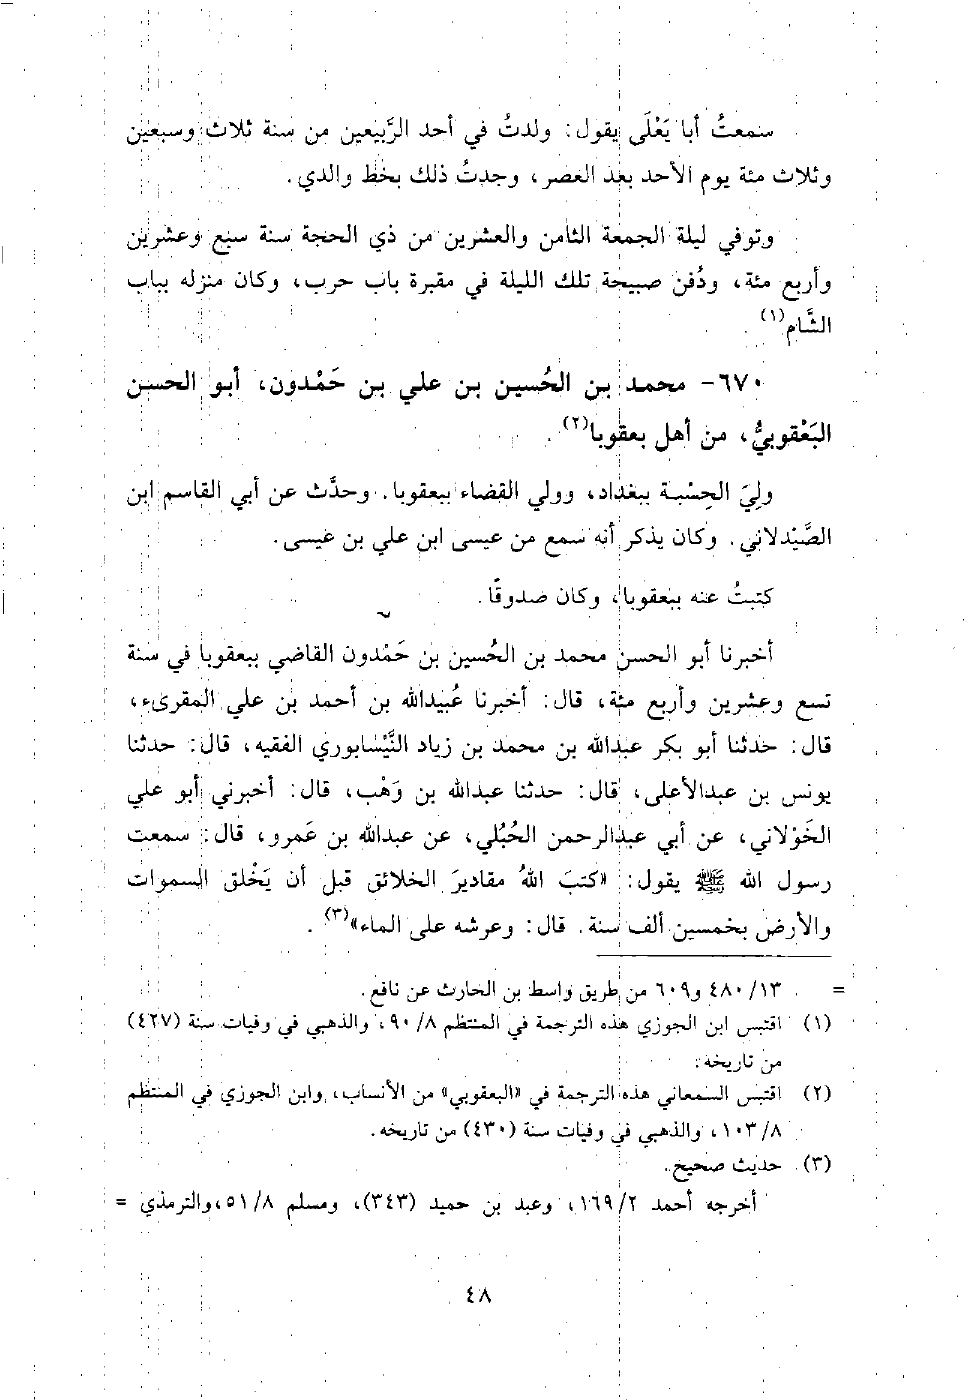 سمعتُ أبا يَعْلَى يقول: ولدتُ في أحد الرَّبيعين من سنة ثلاث وسبعين
وثلاث مئة يوم الأحد بعد العصر، وجدتُ ذلك بخط والدي.
وتوفي ليلة الجمعة الثامن والعشرين من ذي الحجة سنة سبع وعشرين
وأربع مئة، ودُفن صبيحة تلك الليلة في مقبرة باب حرب، وكان منزله بباب
الشَّام(١).
٦٧٠- محمد بن الحُسين بن علي بن حَمْدون، أبو الحسن
البَعْقوبيُّ، من أهل بعقوبا(٢).
ولِيَ الحِسْبة ببغداد، وولي القضاء ببعقوبا. وحدَّث عن أبي القاسم ابن
الصَّيْدلاني. وكان يذكر أنه سمع من عيسى ابن علي بن عيسى.
كتبتُ عنه ببعقوبا، وكان صدوقًا.
أخبرنا أبو الحسن محمد بن الحُسين بن حَمْدون القاضي ببعقوبا في سنة
تسع وعشرين وأربع مئة، قال: أخبرنا عُبيدالله بن أحمد بن علي المقرىء،
قال: حدثنا أبو بكر عبدالله بن محمد بن زياد النَّيْسابوري الفقيه، قال: حدثنا
يونس بن عبدالأعلى، قال: حدثنا عبدالله بن وَهْب، قال: أخبرني أبو علي
الخَوْلاني، عن أبي عبدالرحمن الحُبُلي، عن عبدالله بن عَمرو، قال: سمعت
رسول الله ﷺ يقول: «كتبَ اللهُ مقاديرَ الخلائق قبل أن يَخْلق السموات
والأرض بخمسين ألف سنة. قال: وعرشه على الماء»(٣).
= ١٣/ ٤٨٠ و٦٠٩ من طريق واسط بن الحارث عن نافع.
(١) اقتبس ابن الجوزي هذه الترجمة في المنتظم ٨/ ٩٠، والذهبي في وفيات سنة (٤٢٧)
من تاريخه.
(٢) اقتبس السمعاني هذه الترجمة في «البعقوبي» من الأنساب، وابن الجوزي في المنتظم
٨/ ١٠٣، والذهبي في وفيات سنة (٤٣٠) من تاريخه.
(٣) حديث صحيح.
أخرجه أحمد ٢/ ١٦٩، وعبد بن حميد (٣٤٣)، ومسلم ٨/ ٥١، والترمذي =
٤٨